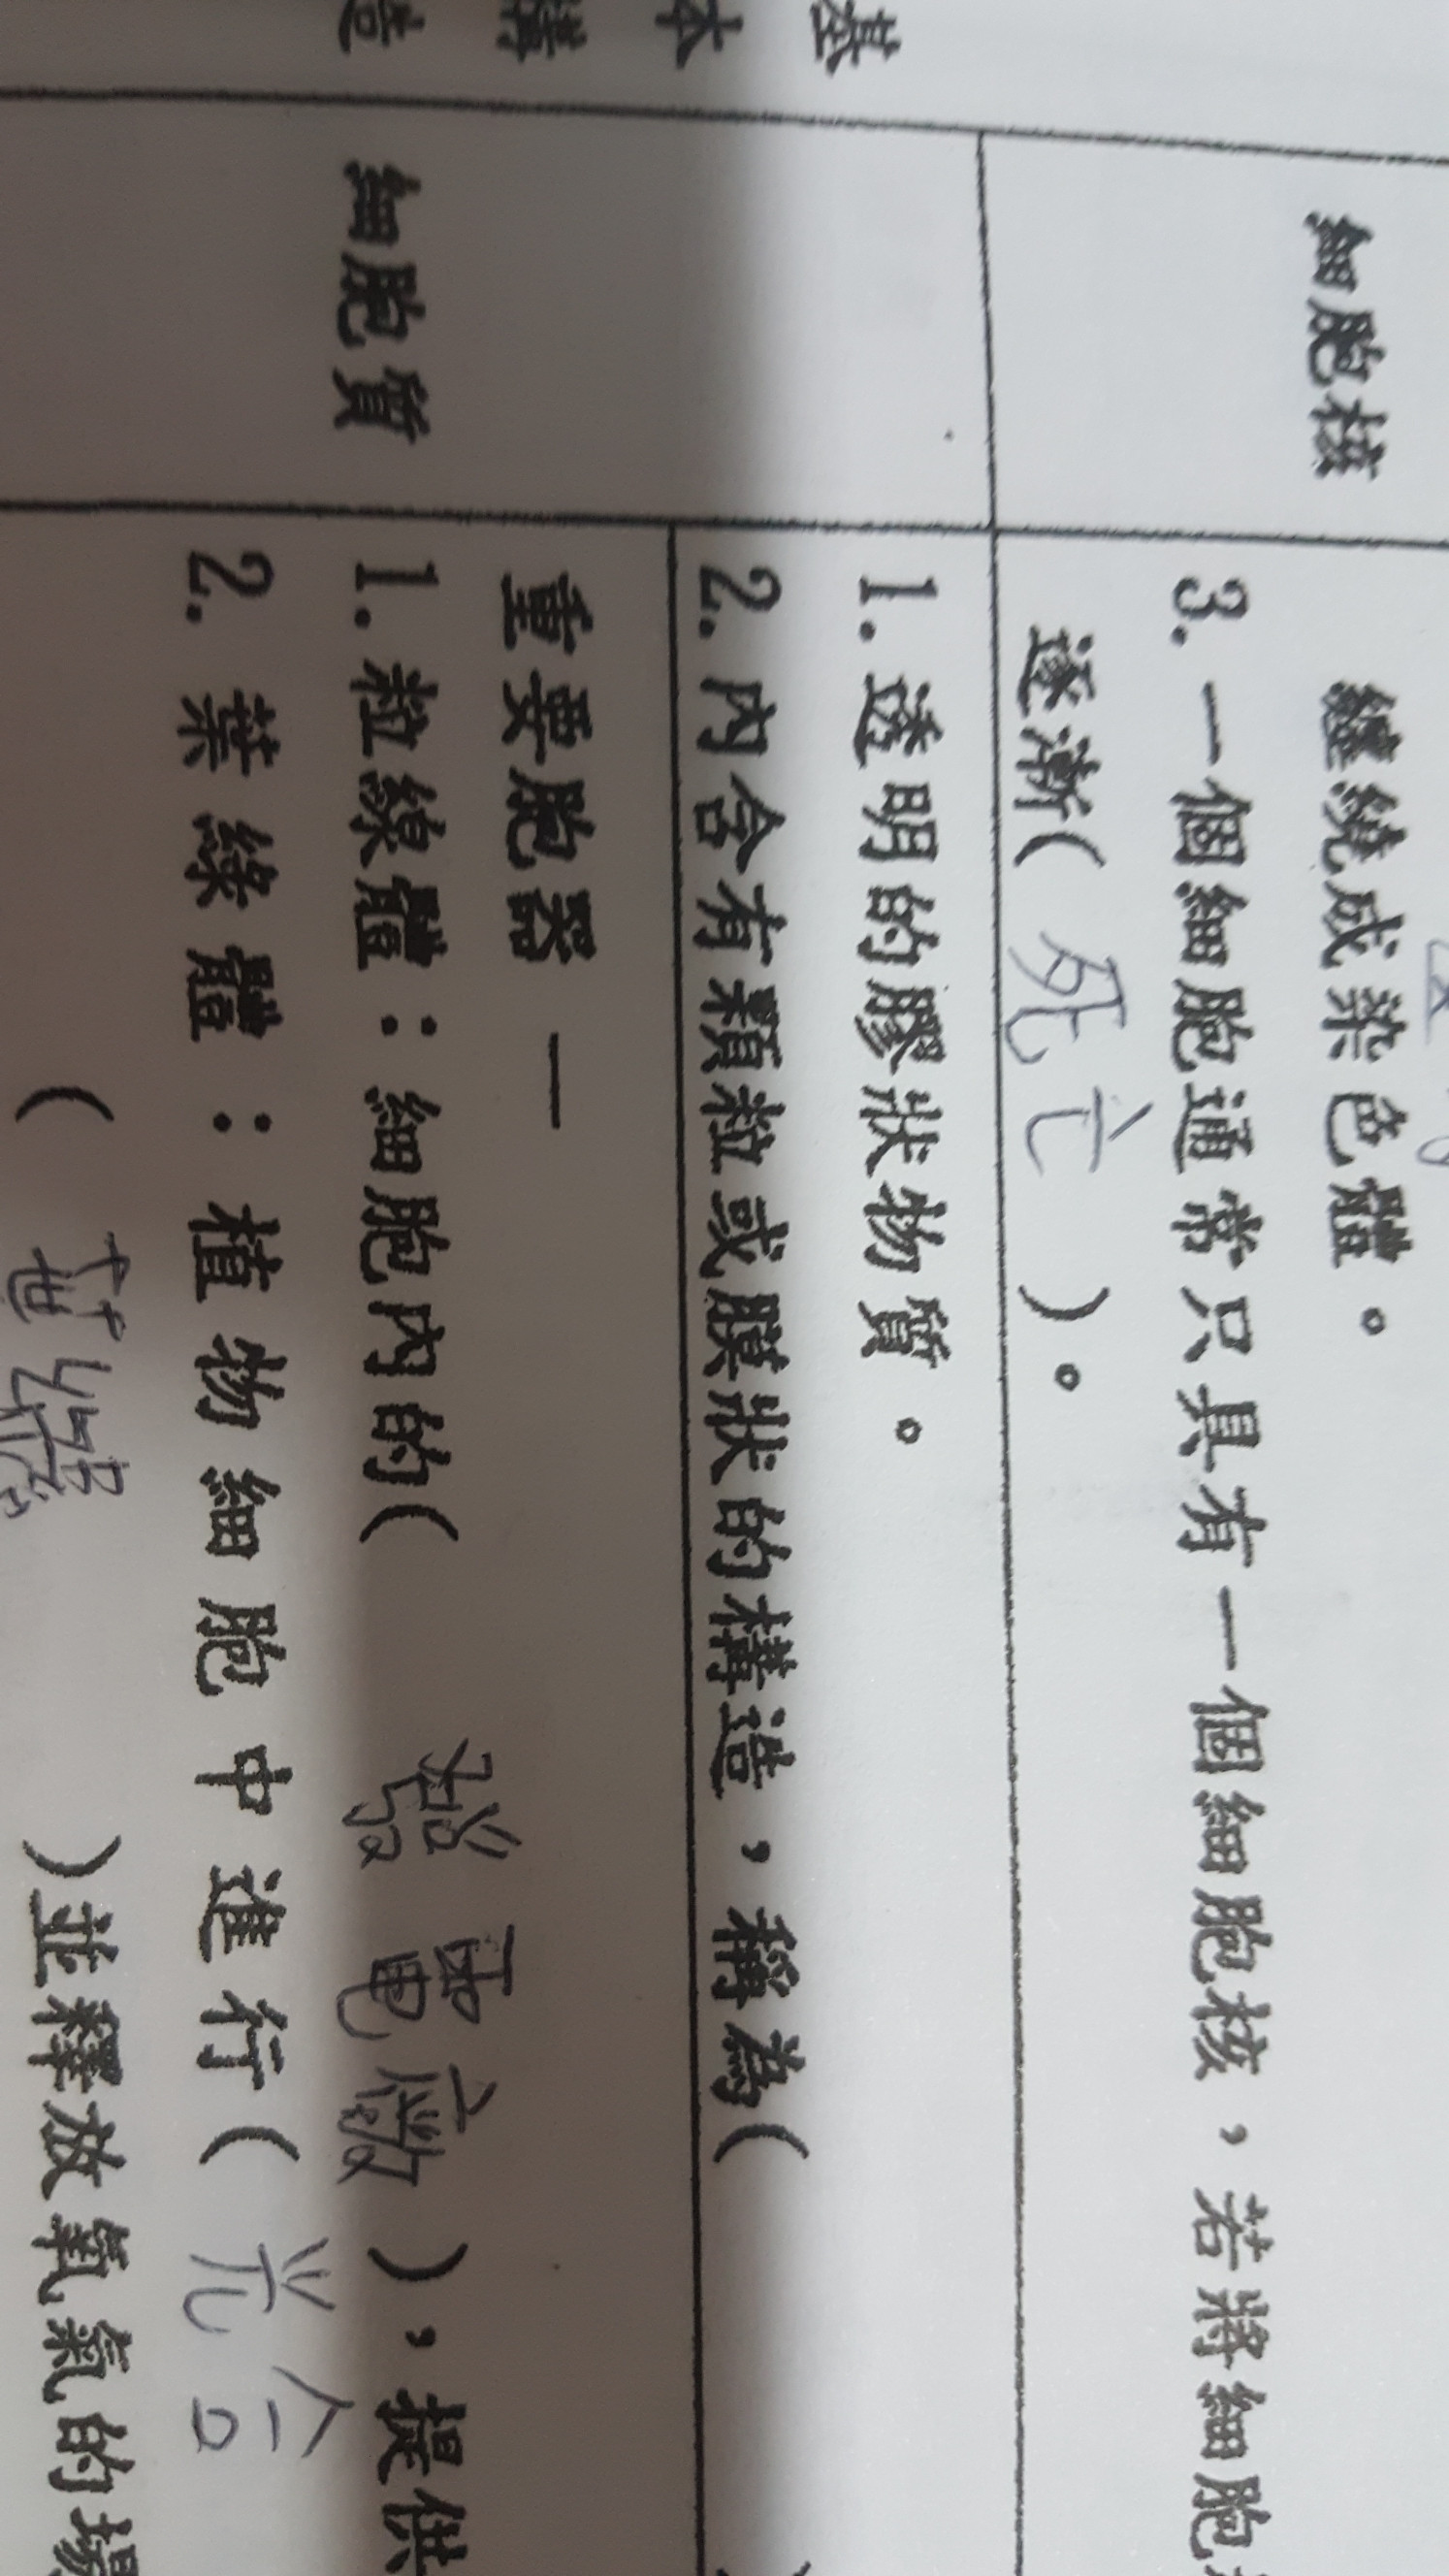 基
本
構
造
細胞核
纏繞成染色體。
3. 一個細胞通常只具有一個細胞核，若將細胞
逐漸( 死亡 )。
細胞質
1. 透明的膠狀物質。
2. 內含有顆粒或膜狀的構造，稱為(
重要胞器 —
1. 粒線體：細胞內的( 發電廠 )，提供
2. 葉綠體：植物細胞中進行( 光合
( 葉綠 )並釋放氧氣的場